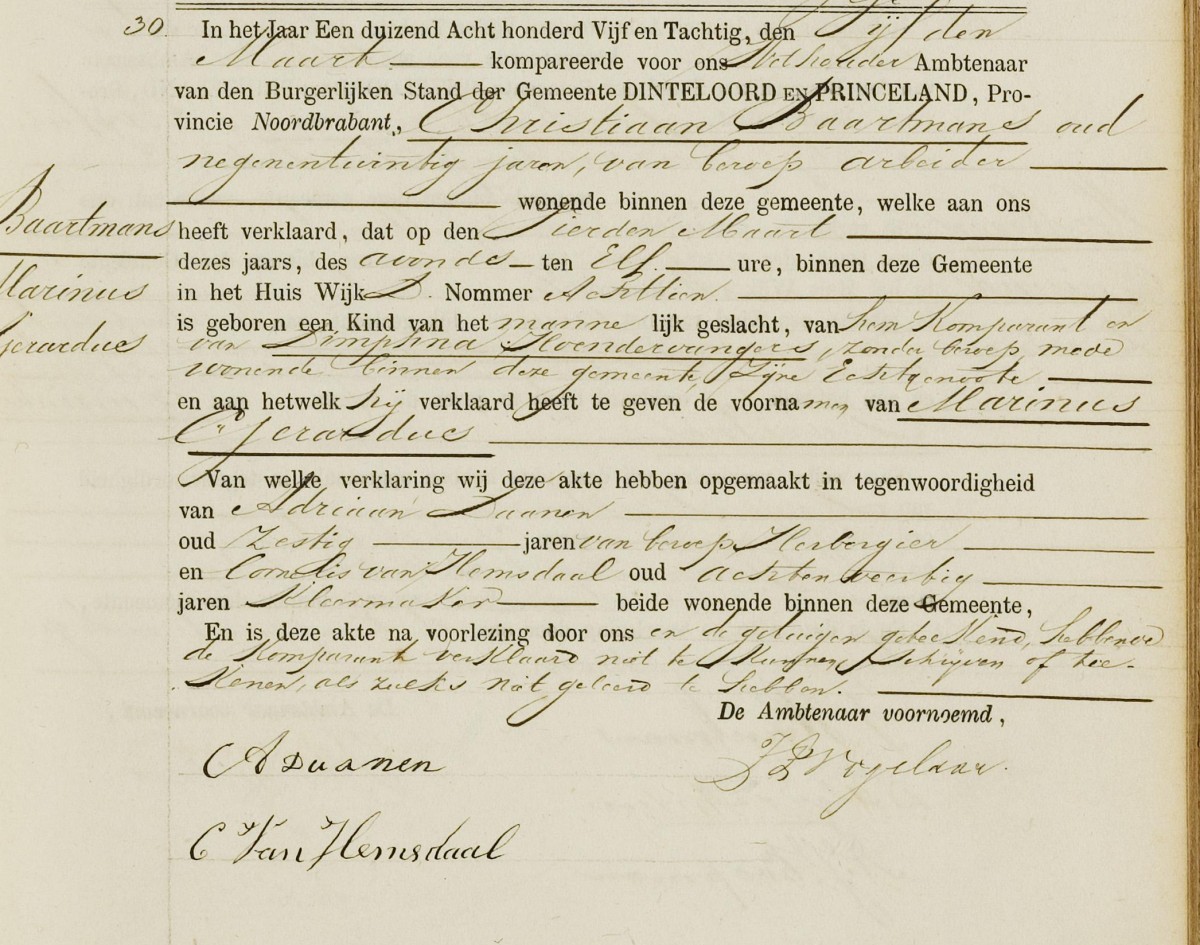 30 In het Jaar Een duizend Acht honderd Vijf en Tachtig, den Vijfden
Maart kompareerde voor ons Wethouder Ambtenaar
van den Burgerlijken Stand der Gemeente DINTELOORD EN PRINCELAND, Pro-
vincie Noordbrabant, Christiaan Baartmans oud
negenentwintig jaren, van beroep arbeider
wonende binnen deze gemeente, welke aan ons
Baartmans
heeft verklaard, dat op den Vierden Maart
dezes jaars, des avonds ten Elf ure, binnen deze Gemeente
Marinus
in het Huis Wijk D. Nommer Achttien.
is geboren een Kind van het mannelijk geslacht, van hem Komparant en
Gerardus
van Dimphna Hoendervangers, zonder beroep, mede
wonende binnen deze gemeente, Zijne Echtgenoote
en aan hetwelk hij verklaard heeft te geven de voornamen van Marinus
Gerardus
Van welke verklaring wij deze akte hebben opgemaakt in tegenwoordigheid
van Adriaan Daanen
oud Zestig jaren van beroep Herbergier
en Cornelis van Hemsdaal oud achtenveertig
jaren Kleermaker beide wonende binnen deze Gemeente,
En is deze akte na voorlezing door ons en de getuigen geteekend, hebbende
de Komparant verklaard niet te kunnen schrijven of tee-
kenen, als zulks niet geleerd te hebben.
De Ambtenaar voornoemd,
A Daanen
Vogelaar
C Van Hemsdaal